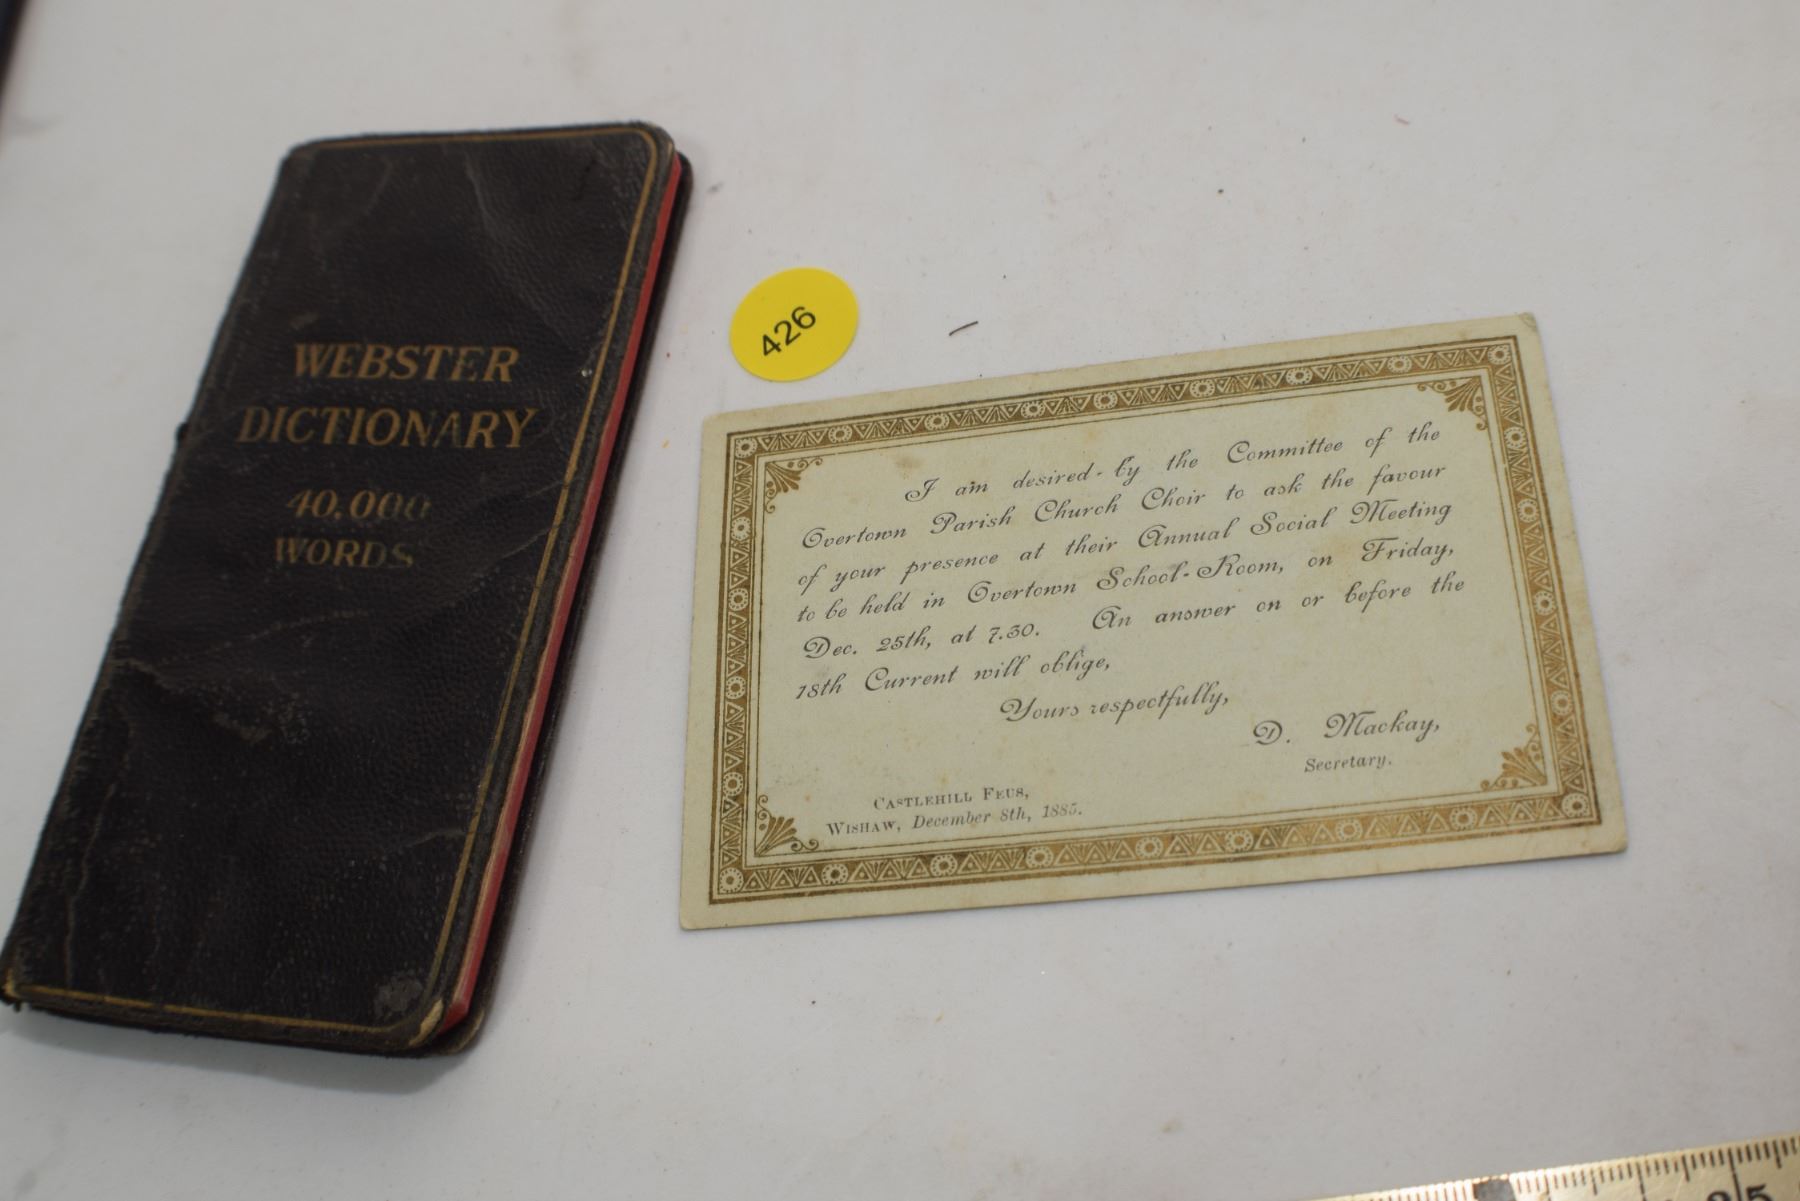 WEBSTER
DICTIONARY
40,000
WORDS
426
I am desired by the Committee of the
Overtown Parish Church Choir to ask the favour
of your presence at their Annual Social Meeting
to be held in Overtown School-Room, on Friday,
Dec. 25th, at 7.30. An answer on or before the
18th Current will oblige,
Yours respectfully,
D. Mackay,
Secretary.
CASTLEHILL FEUS,
WISHAW, December 8th, 1885.
25